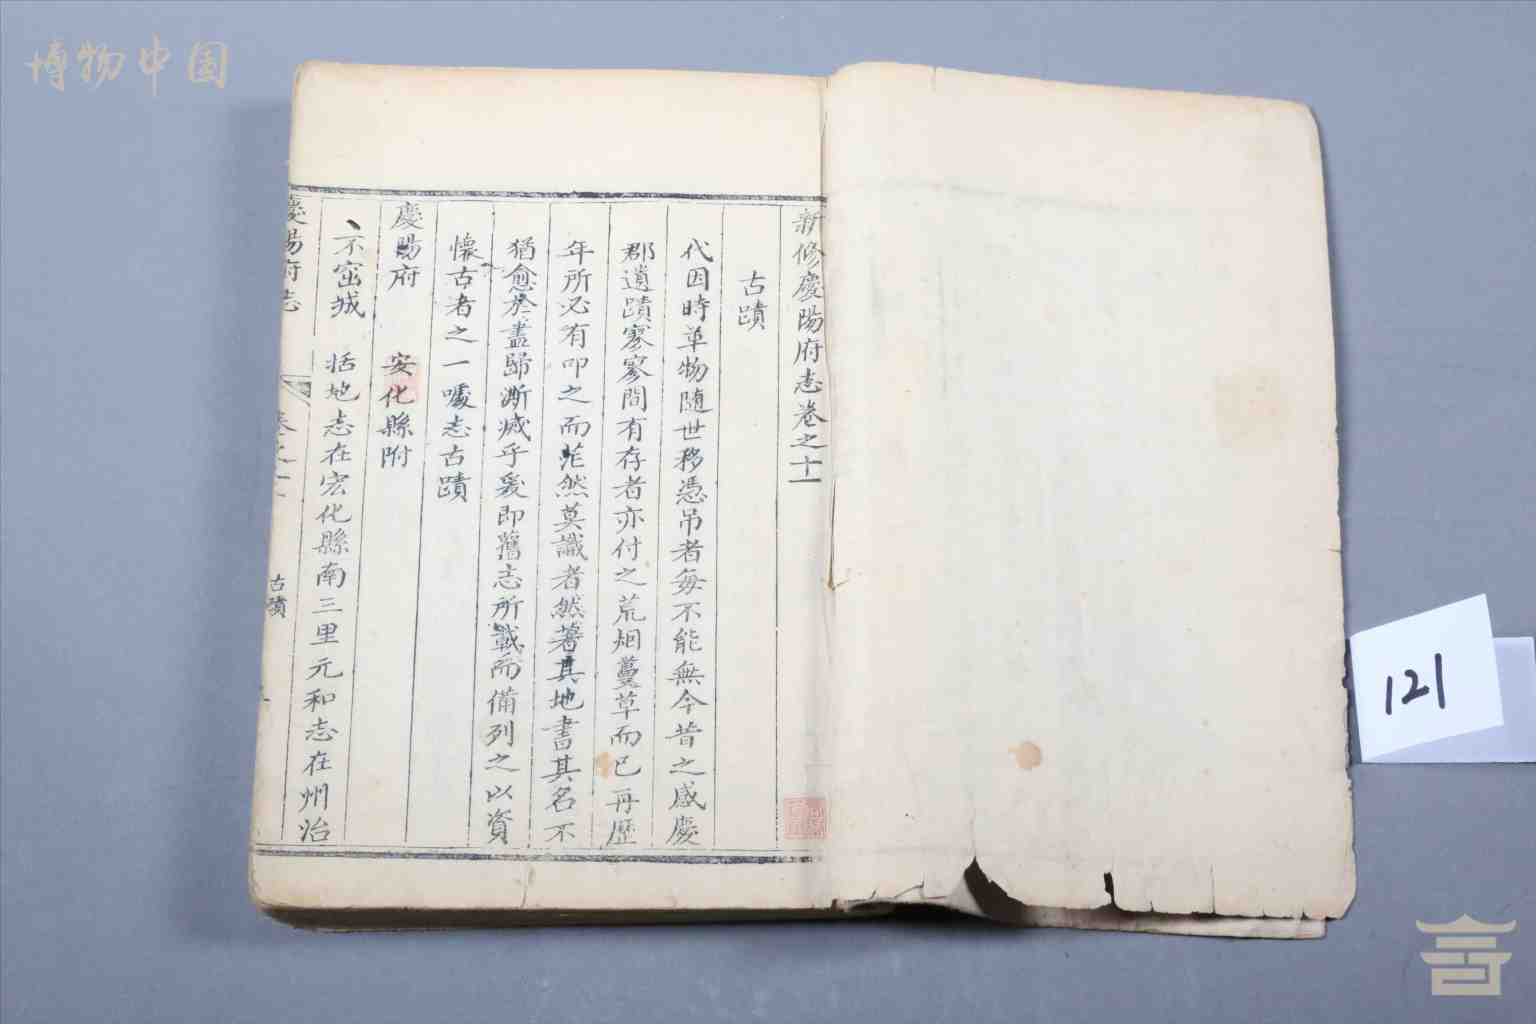 博物中国
新修慶陽府志卷之十一
古蹟
代因時革物隨世移憑吊者每不能無今昔之感慶
郡遺蹟寥寥間有存者亦付之荒烟蔓草而已再歷
年所必有叩之而茫然莫識者然著其地書其名不
猶愈於盡歸澌滅乎爰即舊志所載而備列之以資
懷古者之一噱志古蹟
慶陽府 安化縣附
不窋城 括地志在宏化縣南三里元和志在州治
慶陽府志 卷之十一 古蹟
121